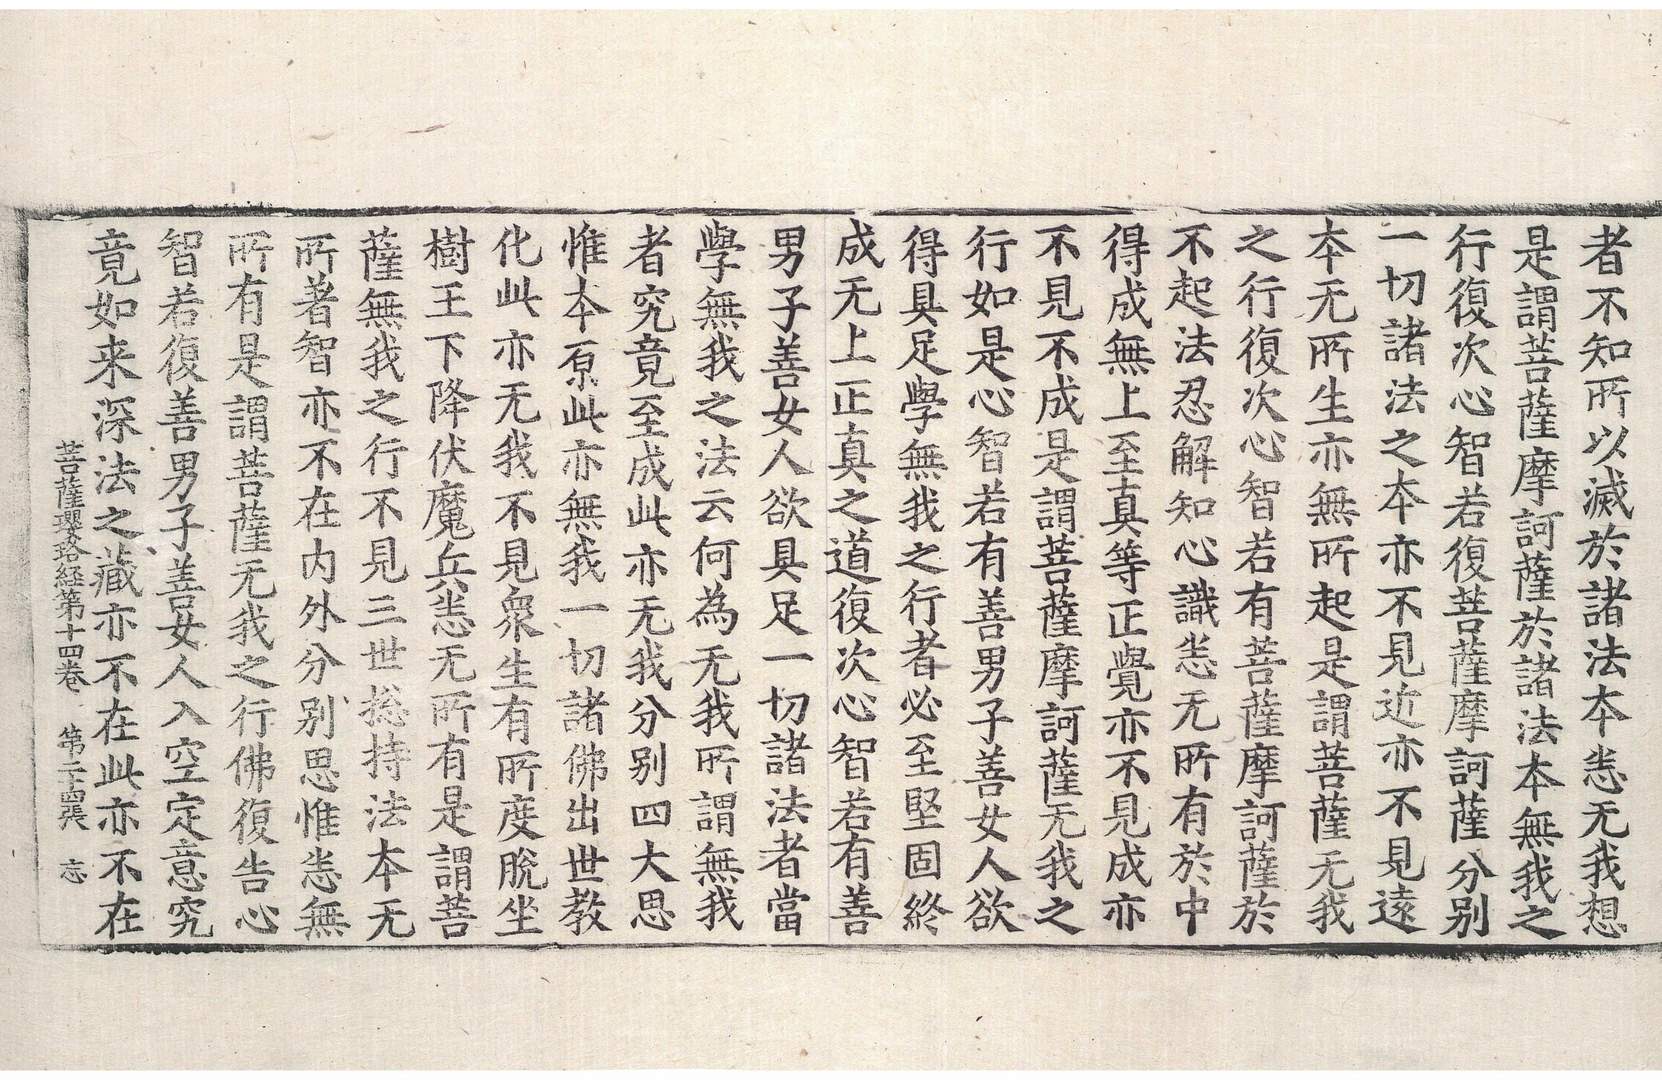 者不知所以滅於諸法本悉无我想
是謂菩薩摩訶薩於諸法本無我之
行復次心智若復菩薩摩訶薩分別
一切諸法之本亦不見近亦不見遠
本无所生亦無所起是謂菩薩无我
之行復次心智若有菩薩摩訶薩於
不起法忍解知心識悉无所有於中
得成無上至真等正覺亦不見成亦
不見不成是謂菩薩摩訶薩无我之
行如是心智若有善男子善女人欲
得具足學無我之行者必至堅固終
成无上正真之道復次心智若有善
男子善女人欲具足一切諸法者當
學無我之法云何為无我所謂無我
者究竟至成此亦无我分別四大思
惟本原此亦無我一切諸佛出世教
化此亦无我不見衆生有所度脫坐
樹王下降伏魔兵悉无所有是謂菩
薩無我之行不見三世揔持法本无
所著智亦不在內外分別思惟悉無
所有是謂菩薩无我之行佛復告心
智若復善男子善女人入空定意究
竟如来深法之藏亦不在此亦不在
菩薩瓔珞経第十四卷 第二十四張 忘